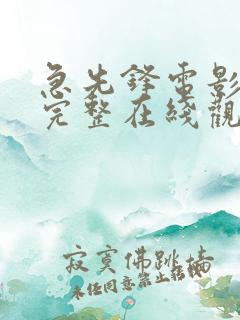 急先鋒電影
完整在綫觀
寂寞佛跳墻
未經同意禁止轉載